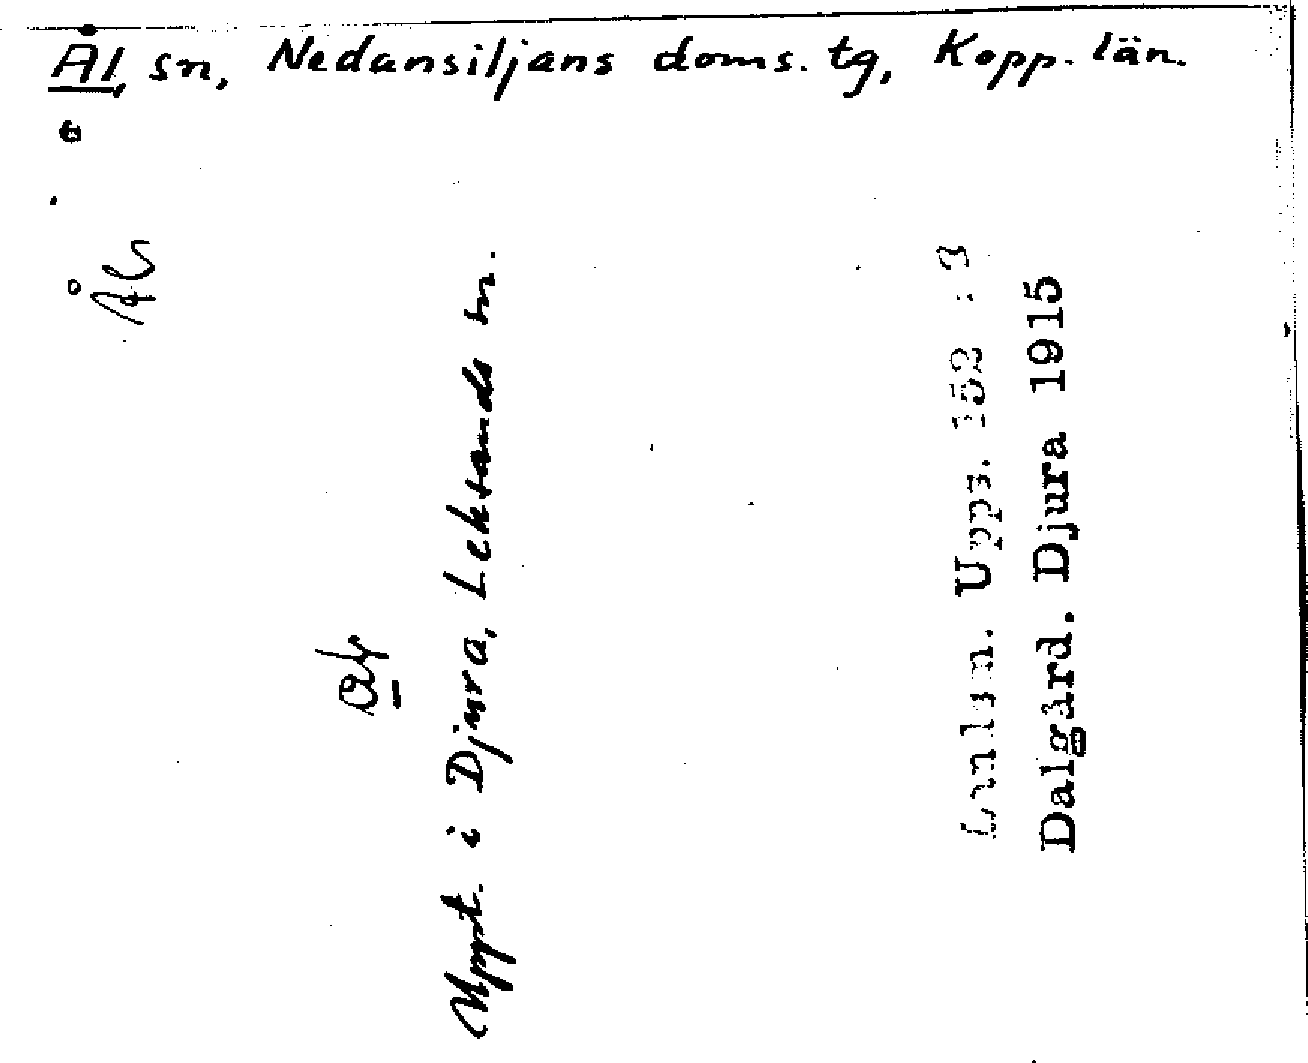 Ål, sn, Nedansiljans doms. tg, Kopp. län.
Ål
Uppt. i Djura, Leksands sn.
Landsm. Upps. 152 : 3
Dalgård. Djura 1915